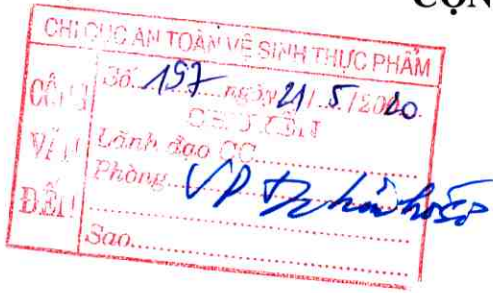 CỘN
CHI CỤC AN TOÀN VỆ SINH THỰC PHẨM
CÔNG VĂN ĐẾN
Số 157 ngày 21/5/2020
CHUYỂN
Lãnh đạo CC
Phòng VP
Sao